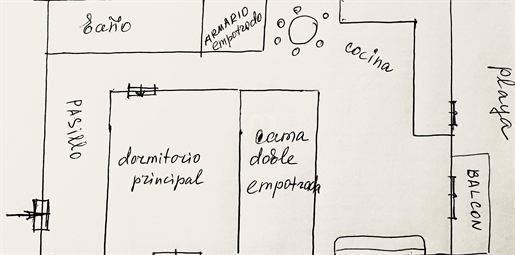 baño
ARMARIO
empotrado
cocina
Playa
PASillo
dormitorio
principal
cama
doble
empotrada
BALCON